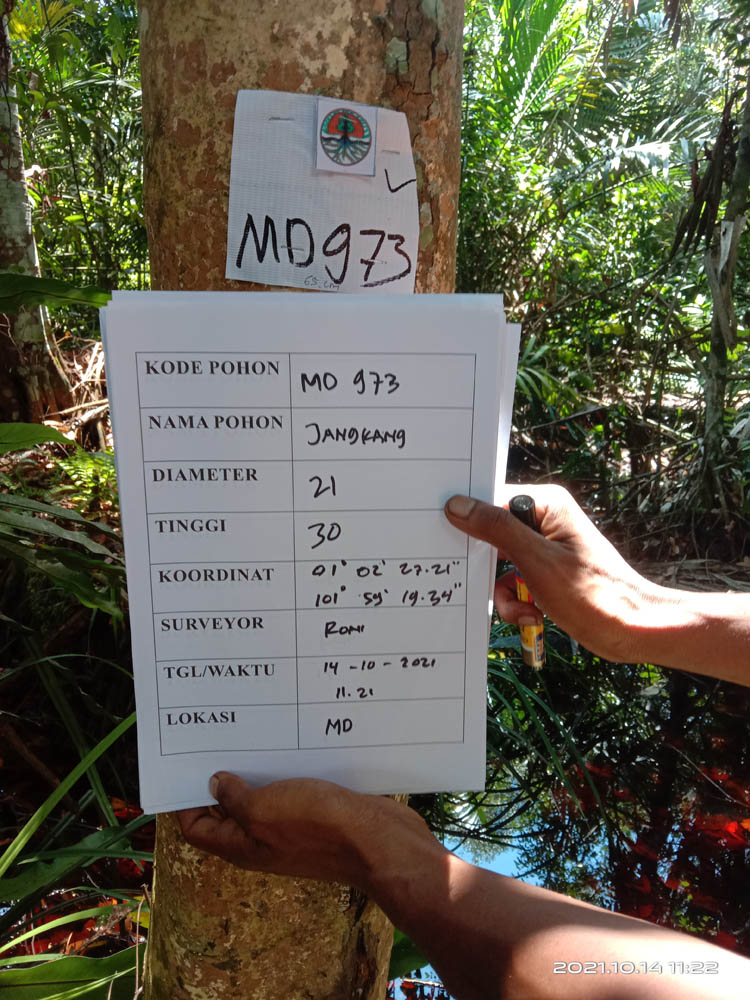 MD973
KODE POHON MD 973
NAMA POHON JANGKANG
DIAMETER 21
TINGGI 30
KOORDINAT 01° 02' 27.21"
101° 59' 19.34"
SURVEYOR ROMI
TGL/WAKTU 14-10-2021
11.21
LOKASI MD
2021.10.14 11:22